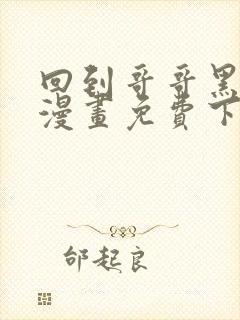 回到哥哥黑
漫畫免費下
邰起良